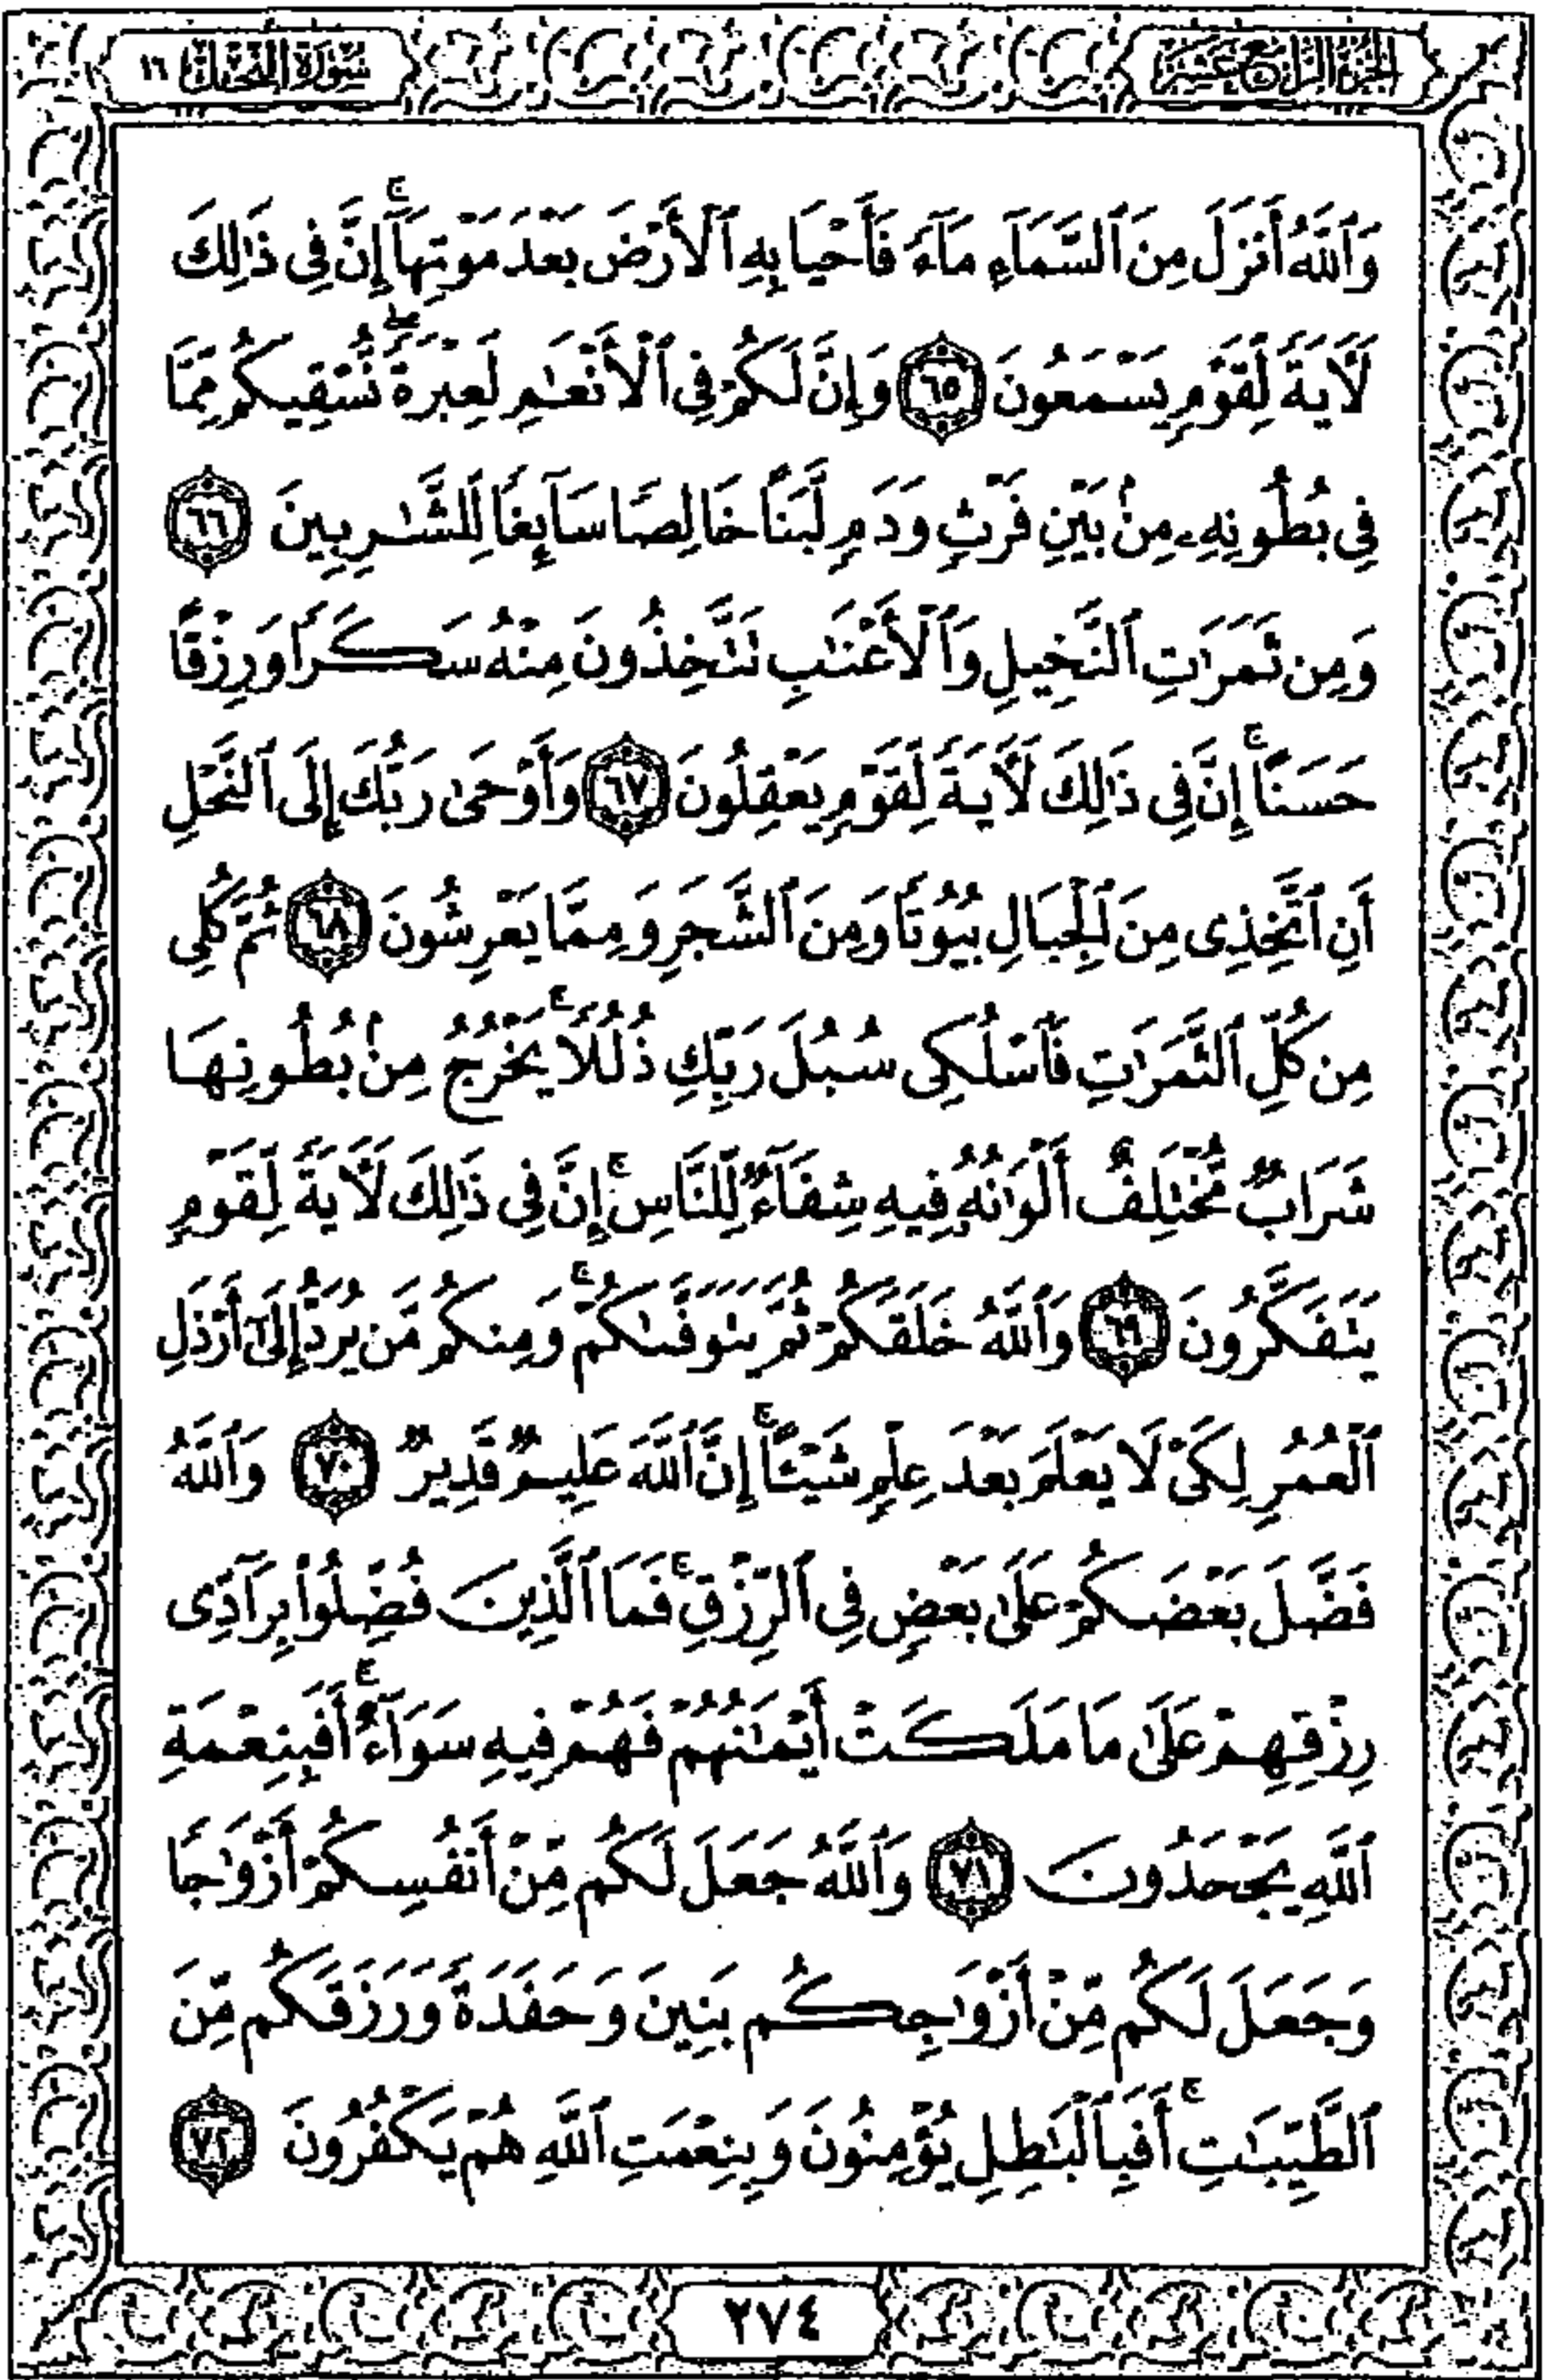 الجزء الرابع عشر
سورة النحل ١٦
وَٱللَّهُ أَنزَلَ مِنَ ٱلسَّمَآءِ مَآءً فَأَحْيَا بِهِ ٱلْأَرْضَ بَعْدَ مَوْتِهَآ ۚ إِنَّ فِى ذَٰلِكَ
لَأَيَةً لِّقَوْمٍ يَسْمَعُونَ ٦٥ وَإِنَّ لَكُمْ فِى ٱلْأَنْعَٰمِ لَعِبْرَةً ۖ نُّسْقِيكُم مِّمَّا
فِى بُطُونِهِۦ مِنۢ بَيْنِ فَرْثٍ وَدَمٍ لَّبَنًا خَالِصًا سَآئِغًا لِّلشَّٰرِبِينَ ٦٦
وَمِن ثَمَرَٰتِ ٱلنَّخِيلِ وَٱلْأَعْنَٰبِ تَتَّخِذُونَ مِنْهُ سَكَرًا وَرِزْقًا
حَسَنًا ۗ إِنَّ فِى ذَٰلِكَ لَأَيَةً لِّقَوْمٍ يَعْقِلُونَ ٦٧ وَأَوْحَىٰ رَبُّكَ إِلَى ٱلنَّحْلِ
أَنِ ٱتَّخِذِى مِنَ ٱلْجِبَالِ بُيُوتًا وَمِنَ ٱلشَّجَرِ وَمِمَّا يَعْرِشُونَ ٦٨ ثُمَّ كُلِى
مِن كُلِّ ٱلثَّمَرَٰتِ فَٱسْلُكِى سُبُلَ رَبِّكِ ذُلُلًا ۚ يَخْرُجُ مِنۢ بُطُونِهَا
شَرَابٌ مُّخْتَلِفٌ أَلْوَٰنُهُۥ فِيهِ شِفَآءٌ لِّلنَّاسِ ۗ إِنَّ فِى ذَٰلِكَ لَأَيَةً لِّقَوْمٍ
يَتَفَكَّرُونَ ٦٩ وَٱللَّهُ خَلَقَكُمْ ثُمَّ يَتَوَفَّىٰكُمْ ۚ وَمِنكُم مَّن يُرَدُّ إِلَىٰٓ أَرْذَلِ
ٱلْعُمُرِ لِكَىْ لَا يَعْلَمَ بَعْدَ عِلْمٍ شَيْـًٔا ۚ إِنَّ ٱللَّهَ عَلِيمٌ قَدِيرٌ ٧٠ وَٱللَّهُ
فَضَّلَ بَعْضَكُمْ عَلَىٰ بَعْضٍ فِى ٱلرِّزْقِ ۚ فَمَا ٱلَّذِينَ فُضِّلُوا۟ بِرَآدِّى
رِزْقِهِمْ عَلَىٰ مَا مَلَكَتْ أَيْمَٰنُهُمْ فَهُمْ فِيهِ سَوَآءٌ ۚ أَفَبِنِعْمَةِ
ٱللَّهِ يَجْحَدُونَ ٧١ وَٱللَّهُ جَعَلَ لَكُم مِّنْ أَنفُسِكُمْ أَزْوَٰجًا
وَجَعَلَ لَكُم مِّنْ أَزْوَٰجِكُم بَنِينَ وَحَفَدَةً وَرَزَقَكُم مِّنَ
ٱلطَّيِّبَٰتِ ۚ أَفَبِٱلْبَٰطِلِ يُؤْمِنُونَ وَبِنِعْمَتِ ٱللَّهِ هُمْ يَكْفُرُونَ ٧٢
٢٧٤